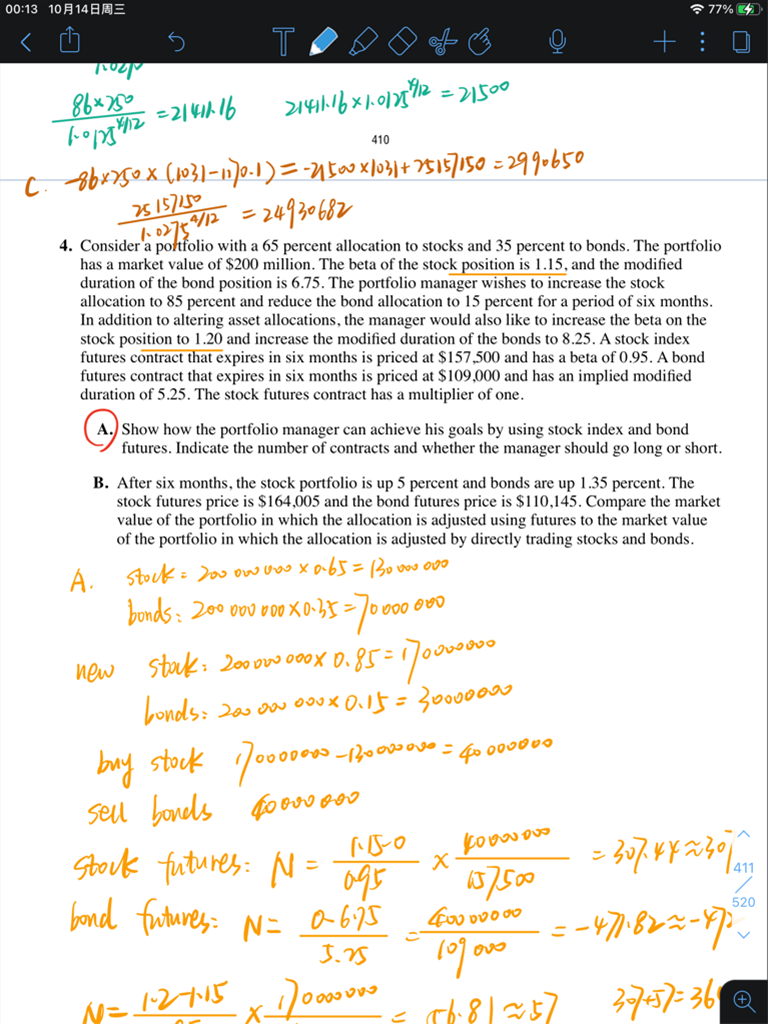 00:13 10月14日周三
77%
T
1.02
86×250 / 1.0125^4/12 = 21411.16 21411.16 × 1.0125^4/12 = 21500
410
C. -86×250×(1031-1170.1) = -21500×1031+25157150 = 2990650
25157150 / 1.0275^4/12 = 24930682
4. Consider a portfolio with a 65 percent allocation to stocks and 35 percent to bonds. The portfolio
has a market value of $200 million. The beta of the stock position is 1.15, and the modified
duration of the bond position is 6.75. The portfolio manager wishes to increase the stock
allocation to 85 percent and reduce the bond allocation to 15 percent for a period of six months.
In addition to altering asset allocations, the manager would also like to increase the beta on the
stock position to 1.20 and increase the modified duration of the bonds to 8.25. A stock index
futures contract that expires in six months is priced at $157,500 and has a beta of 0.95. A bond
futures contract that expires in six months is priced at $109,000 and has an implied modified
duration of 5.25. The stock futures contract has a multiplier of one.
A. Show how the portfolio manager can achieve his goals by using stock index and bond
futures. Indicate the number of contracts and whether the manager should go long or short.
B. After six months, the stock portfolio is up 5 percent and bonds are up 1.35 percent. The
stock futures price is $164,005 and the bond futures price is $110,145. Compare the market
value of the portfolio in which the allocation is adjusted using futures to the market value
of the portfolio in which the allocation is adjusted by directly trading stocks and bonds.
A. stock = 200 000 000 × 0.65 = 130 000 000
bonds: 200 000 000 × 0.35 = 70 000 000
new stock: 200 000 000 × 0.85 = 170000000
bonds: 200 000 000 × 0.15 = 30000000
buy stock 170000000 - 130000000 = 40 000000
sell bonds 40000000
stock futures: N = 1.15-0 / 0.95 × 40000000 / 157500 = 307.44 ≈ 307
411
bond futures: N = 0-6.75 / 5.25 = 40000000 / 109000 = -471.82 ≈ -472
520
N = 1.2-1.15 × 170000000 = 56.81 ≈ 57 307+57=364